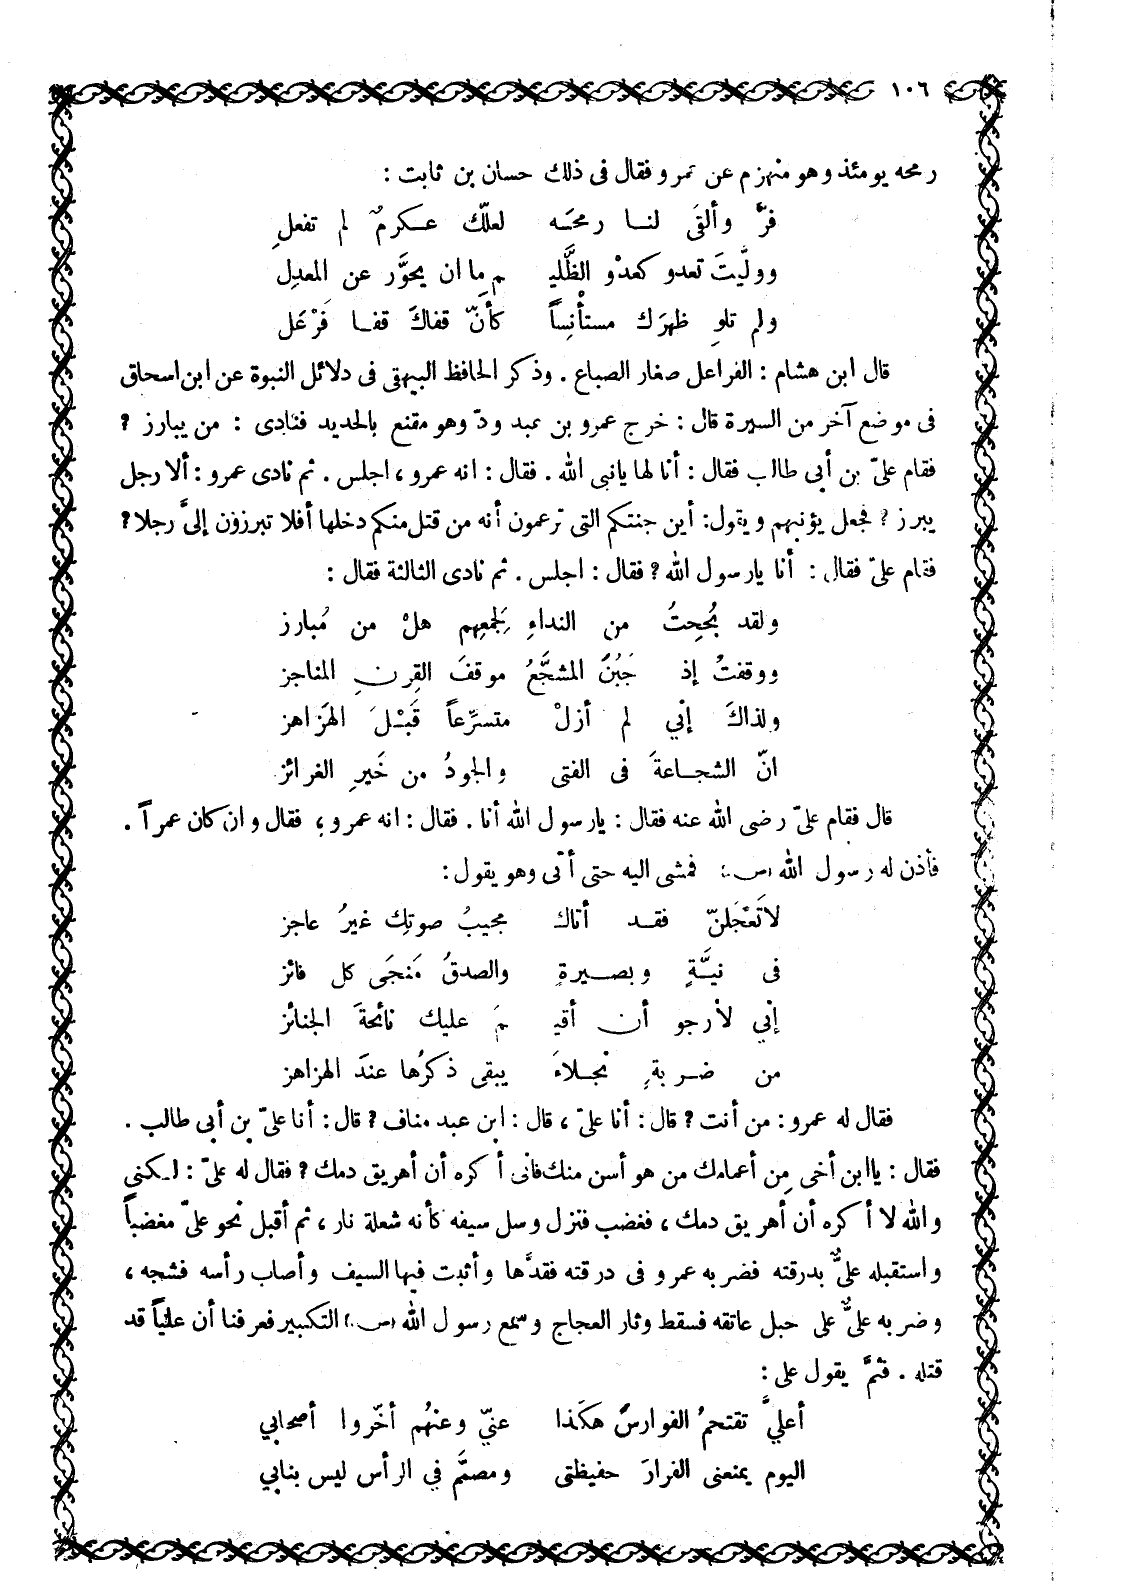 ١٠٦
رمحه يومئذ وهو منهزم عن عمرو فقال فى ذلك حسان بن ثابت :
فرَّ وألقَى لنـا رمحَـه لعلّك عـكرمُ لم تفعلِ
وولَّيتَ تعدو كعدْو الظَّليـ ـم ما ان يحوَّر عن المعدِل
ولم تلوِ ظهرَك مستأْنِساً كأنّ قفاكَ قفـا فَرْعَل
قال ابن هشام : الفراعل صغار الضباع . وذكر الحافظ البيهقى فى دلائل النبوة عن ابن اسحاق
فى موضع آخر من السيرة قال : خرج عمرو بن عبد ودّ وهو مقنع بالحديد فنادى : من يبارز ؟
فقام علىّ بن أبى طالب فقال : أنا لها يانبى الله . فقال : انه عمرو ، اجلس . ثم نادى عمرو : ألا رجل
يبرز ؟ فجعل يؤنبهم ويقول : أين جنتكم التى تزعمون أنه من قتل منكم دخلها أفلا تبرزون إلىَّ رجلا ؟
فقام علىّ فقال : أنا يارسول الله ؟ فقال : اجلس . ثم نادى الثالثة فقال :
ولقد بُححِتُ من النداءِ لِجَمعِهم هلْ من مُبارز
ووقفتُ إذ جَبُنَ المشجَّعُ موقفَ القِرنِ المناجز
ولذاكَ إنّي لم أزلْ متسرِّعاً قَبْـلَ الهَزاهز
انّ الشجـاعةَ فى الفتى والجودُ من خَيرِ الغرائز
قال فقام علىّ رضى الله عنه فقال : يارسول الله أنا . فقال : انه عمرو ؛ فقال وان كان عمراً .
فأذن له رسول الله (ص) فمشى اليه حتى أتى وهو يقول :
لا تَعْجَلنّ فقـد أتاك مجيبُ صوتِك غيرُ عاجز
فى نيَّـةٍ وبصـيرةٍ والصدقُ مَنجَى كل فائز
إنّي لأرجو أن أقيـ ـمَ عليك نائحةَ الجنائز
من ضـربةٍ نجـلاءَ يبقى ذكرُها عندَ الهزاهز
فقال له عمرو : من أنت ؟ قال : أنا علىّ ، قال : ابن عبد مناف ؟ قال : أنا علىّ بن أبى طالب .
فقال : ياابن أخى مِن أعمامك من هو أسن منك فانى أكره أن أهريق دمك ؟ فقال له علىّ : لـكنى
والله لا أكره أن أهريق دمك ، فغضب فنزل وسل سيفه كأنه شعلة نار ، ثم أقبل نحو علىّ مغضباً
واستقبله علىٌّ بدرقته فضربه عمرو فى درقته فقدَّها وأثبت فيها السيف وأصاب رأسه فشجه ،
وضربه علىٌّ على حبل عاتقه فسقط وثار العجاج وسمع رسول الله (ص) التكبير فعرفنا أن علياً قد
قتله . فثمَّ يقول على :
أعليَّ تقتحمُ الفوارسُ هكَذا عنيّ وعنهُم أخّروا أصحابي
اليوم يمنعنى الفرارَ حفيظتى ومصمَّم في الرأس ليس بنابي